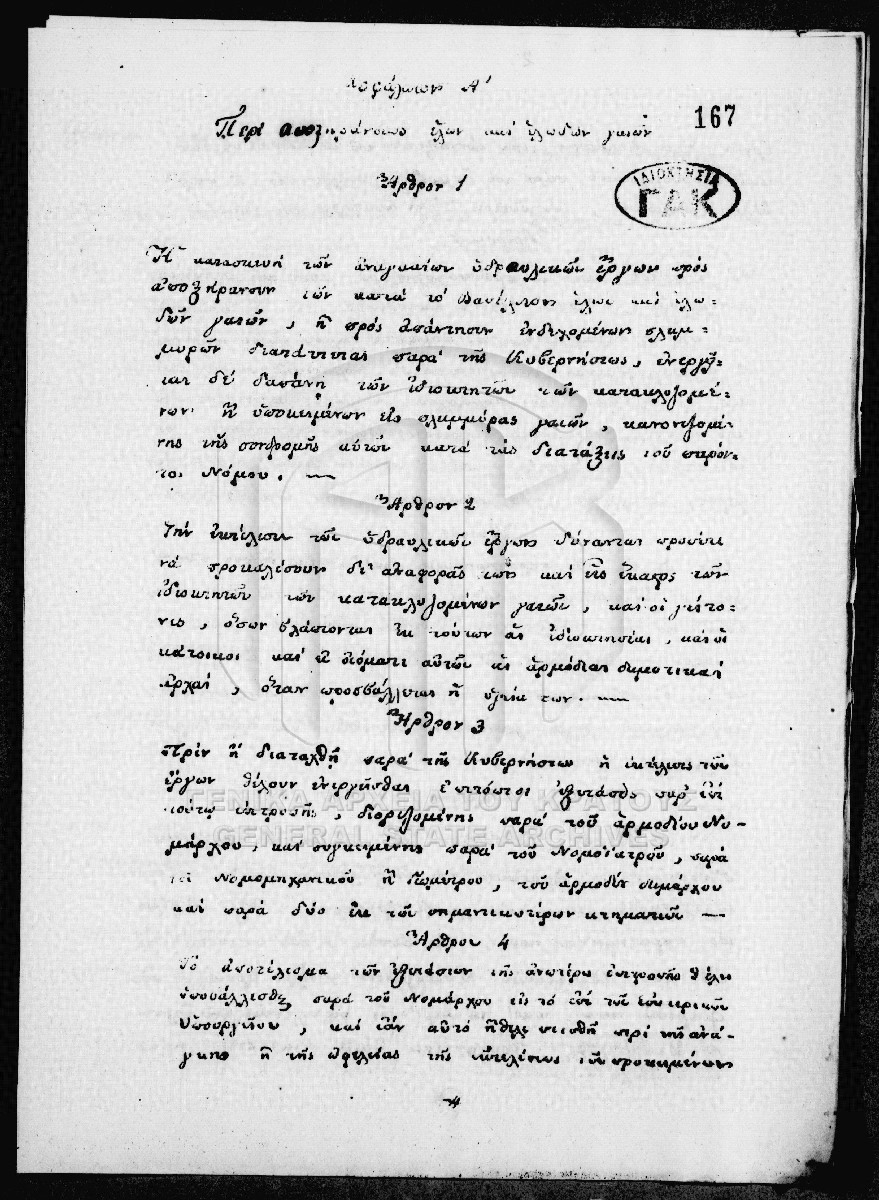 Κεφάλαιον Α΄
Περί αποξηράνσεως ἑλων καί ἑλωδων γαιών
167
Ἄρθρον 1
ΙΔΙΟΚΤΗΣΙΑ
ΓΑΚ
Ἡ κατασκευή τῶν ἀναγκαίων ὑδραυλικῶν ἔργων πρός
ἀποξήρανσιν τῶν κατά τό Βασίλειον ἕλων καί ἑλω-
δῶν γαιῶν, ἤ πρός ἀπάντησιν ἐνδεχομένων πλημ-
μυρῶν διατάττεται παρά τῆς Κυβερνήσεως, ἐνεργεῖ-
ται δέ δαπάνῃ τῶν ἰδιοκτητῶν τῶν κατακλυζομέ-
νων ἤ ὑποκειμένων εἰς πλημμύρας γαιῶν, κανονιζομέ-
νης τῆς συνδρομῆς αὐτῶν κατά τάς διατάξεις τοῦ παρόν-
τος Νόμου.
Ἄρθρον 2
Τήν ἐκτέλεσιν τῶν ὑδραυλικῶν ἔργων δύνανται προσέτι
νά προκαλέσουν δι' ἀναφορᾶς των καί εἷς ἕκαστος τῶν
ἰδιοκτητῶν τῶν κατακλυζομένων γαιῶν, καί οἱ γείτο-
νες, ὅσων βλάπτονται ἐκ τούτων αἱ ἰδιοκτησίαι, καί οἱ
κάτοικοι καί ἐξ ὀνόματι αὐτῶν αἱ ἁρμόδιαι δημοτικαί
ἀρχαί, ὅταν προσβάλλεται ἡ ὑγεία των.
Ἄρθρον 3
Πρίν ἤ διαταχθῇ παρά τῆς Κυβερνήσεως ἡ ἐκτέλεσις τῶν
ἔργων θέλουν ἐνεργεῖσθαι ἐπιτόπιοι ἐξετάσεις παρ' ἐπί
τούτῳ ἐπιτροπῆς, διοριζομένης παρά τοῦ ἁρμοδίου Νο-
μάρχου, καί συγκειμένης παρά τοῦ Νομοϊατροῦ, παρά
τοῦ Νομομηχανικοῦ ἤ Γεωμέτρου, τοῦ ἁρμοδίου δημάρχου
καί παρά δύο ἐκ τῶν σημαντικωτέρων κτηματιῶν
ΓΕΝΙΚΑ ΑΡΧΕΙΑ ΤΟΥ ΚΡΑΤΟΥΣ
GENERAL STATE ARCHIVES
Ἄρθρον 4
Τό ἀποτέλεσμα τῶν ἐξετάσεων τῆς ἀνωτέρω ἐπιτροπῆς θέλει
ὑποβάλλεσθαι παρά τοῦ Νομάρχου εἰς τό ἐπί τῶν ἐσωτερικῶν
Ὑπουργεῖον, καί ἐάν αὐτό ἤθελε πεισθῆ περί τῆς ἀνά-
γκης ἤ τῆς ὠφελείας τῆς ἐκτελέσεως τῶν προκειμένων
4